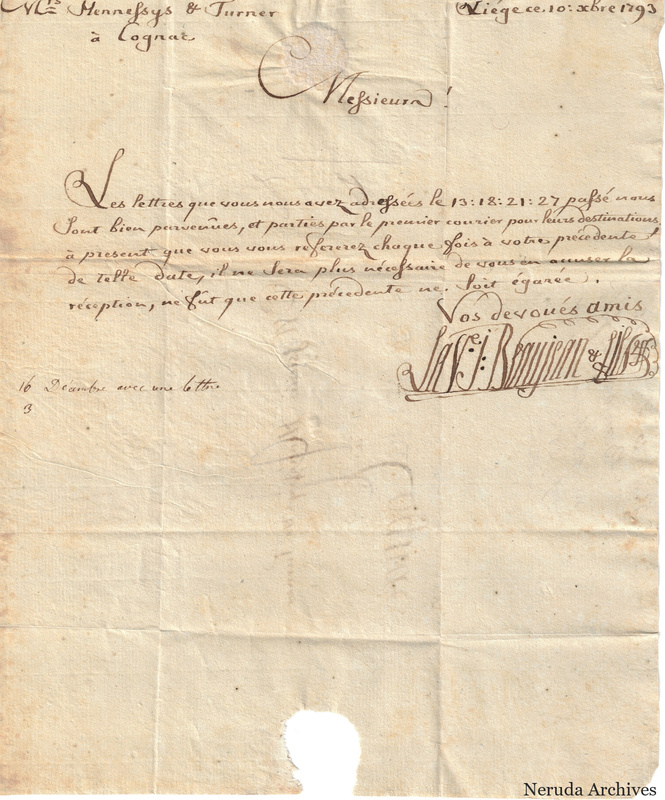 Mrs Hennessys & Turner
à Cognac
Liége ce 10: xbre 1793
Messieurs!
Les lettres que vous nous avez adressées le 13: 18: 21: 27 passé nous
sont bien parvenûes, et parties par le premier courier pour leurs destinations,
à present que vous vous refererez chaque fois à votre précedente
de telle date, il ne sera plus nécessaire de vous en accuser la
réception, ne fut que cette précedente ne soit égarée.
Vos devoués amis
La Ve J: Beaujean & fils
16 Décembre avec une lettre
3
Neruda Archives